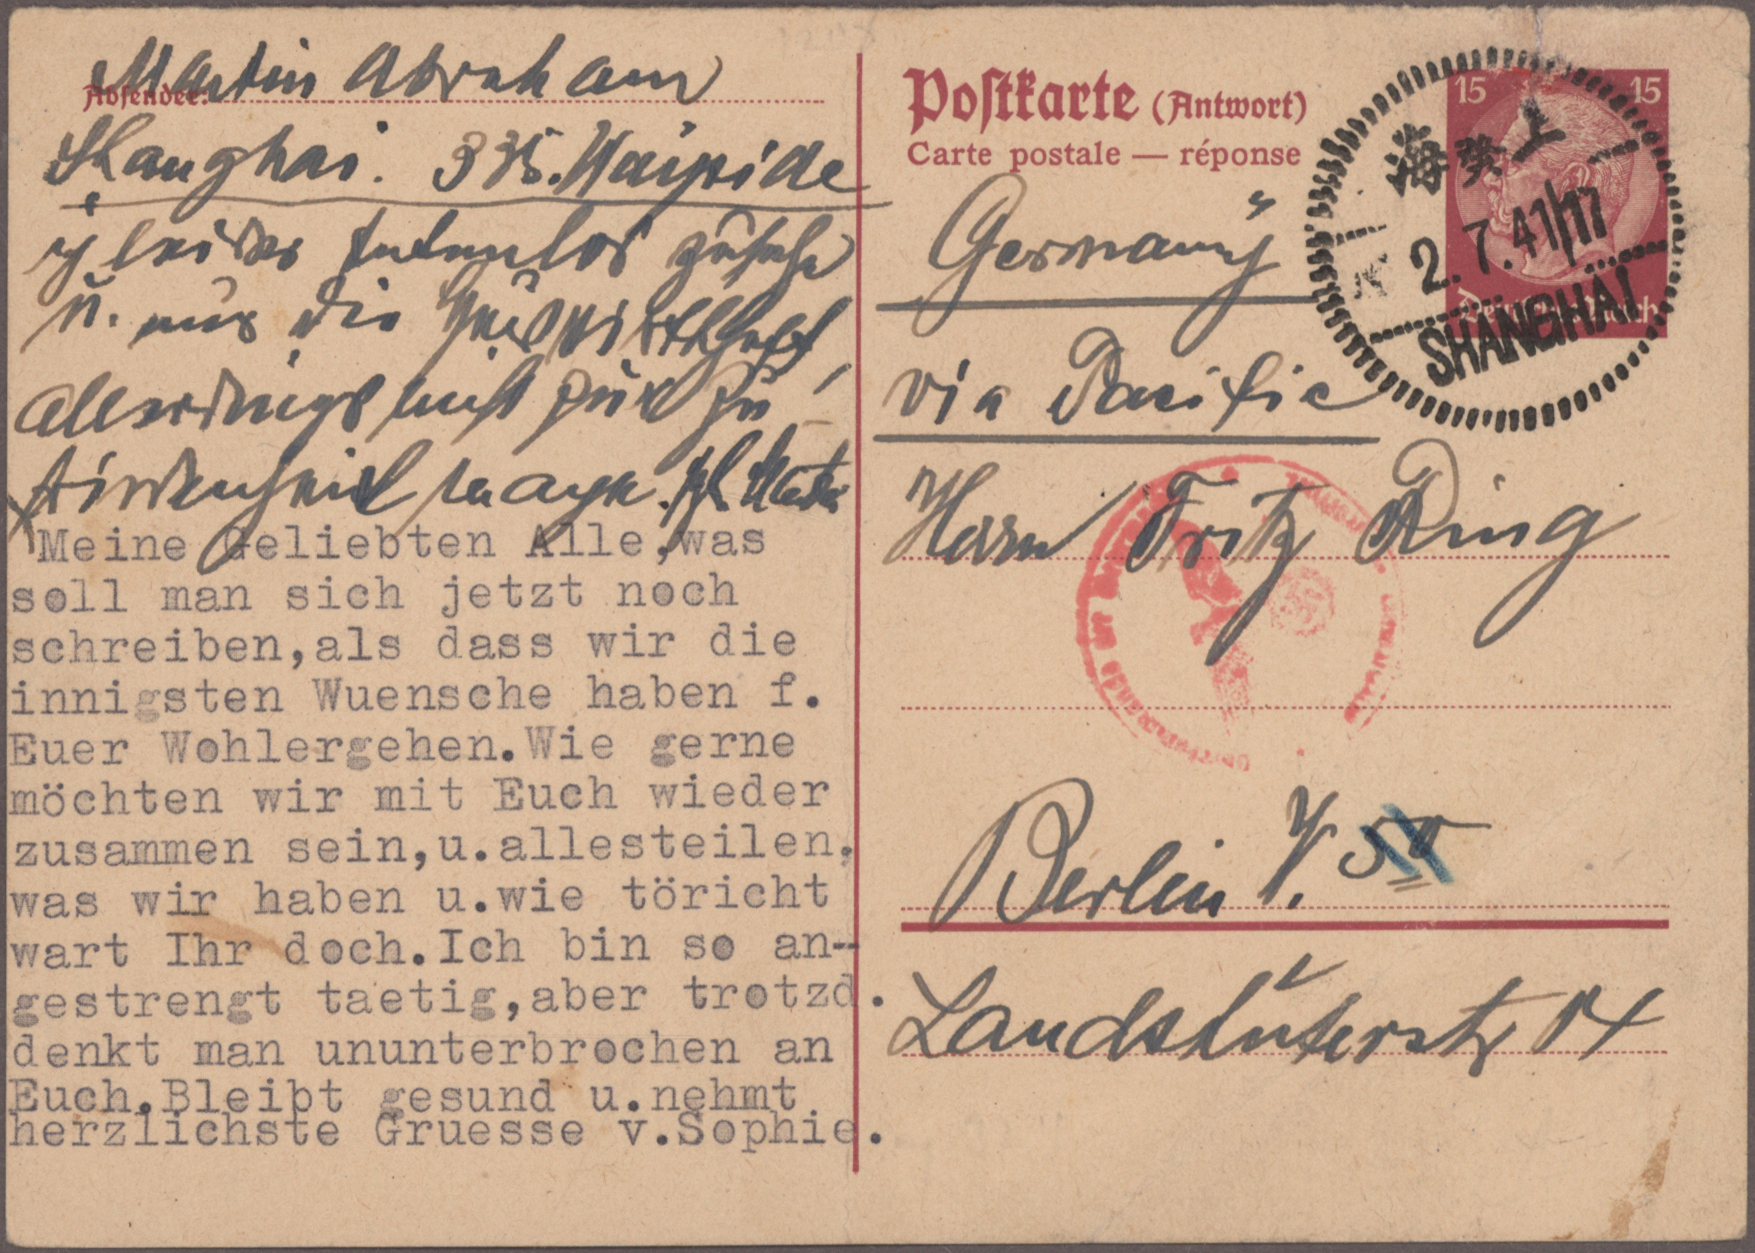 Absender:
Martin Abraham
Shanghai. 335. Waiside
ich leider tatenlos zusehe
u. nur die Hauswirtschaft
allerdings nicht zur Zu-
friedenheit mache.
Meine Geliebten Alle,was
soll man sich jetzt noch
schreiben,als dass wir die
innigsten Wuensche haben f.
Euer Wohlergehen.Wie gerne
möchten wir mit Euch wieder
zusammen sein,u.allesteilen,
was wir haben u.wie töricht
wart Ihr doch.Ich bin so an-
gestrengt taetig,aber trotzd.
denkt man ununterbrochen an
Euch.Bleibt gesund u.nehmt
herzlichste Gruesse v.Sophie.
Postkarte (Antwort)
Carte postale — réponse
15 15
Deutsches Reich
上海
2.7.41/17
SHANGHAI
Germany
via Pacific
Herrn Fritz Ring
Berlin W. 50
Landshuterstr 14